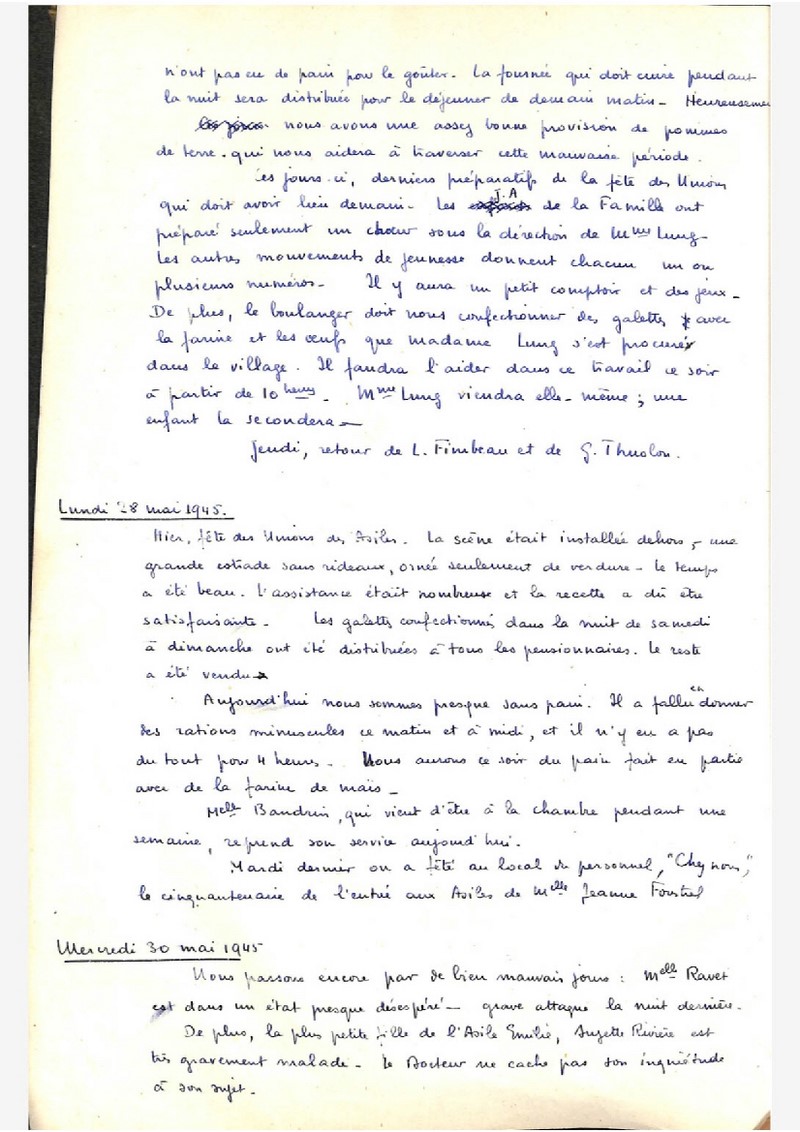 n'ont pas eu de pain pour le goûter. La fournée qui doit cuire pendant
la nuit sera distribuée pour le déjeuner de demain matin - Heureusemen
nous avons une assez bonne provision de pommes
de terre. qui nous aidera à traverser cette mauvaise période.
Ces jours-ci, derniers préparatifs de la fête des Unions
J.A
qui doit avoir lieu demain. Les de la Famille ont
préparé seulement un chœur sous la direction de Mme Lung
Les autres mouvements de jeunesse donnent chacun un ou
plusieurs numéros - Il y aura un petit comptoir et des jeux -
De plus, le boulanger doit nous confectionner des galettes avec
la farine et les œufs que madame Lung s'est procurés
dans le village. Il faudra l'aider dans ce travail ce soir
à partir de 10 heures - Mme Lung viendra elle-même ; une
enfant la secondera -
Jeudi, retour de L. Fimbeau et de G. Thuolon.
Lundi 28 mai 1945.
Hier, fête des Unions des Asiles. La scène était installée dehors, - une
grande estrade sans rideaux, ornée seulement de verdure - le temps
a été beau. L'assistance était nombreuse et la recette a dû être
satisfaisante - Les galettes confectionnés dans la nuit de samedi
à dimanche ont été distribuées à tous les pensionnaires. Le reste
a été vendu
Aujourd'hui nous sommes presque sans pain. Il a fallu en donner
des rations minuscules ce matin et à midi, et il n'y en a pas
du tout pour 4 heures - Nous aurons ce soir du pain fait en partie
avec de la farine de maïs -
Melle Bandrin, qui vient d'être à la chambre pendant une
semaine, reprend son service aujourd'hui.
Mardi dernier on a fêté au local du personnel, "Chez nous,"
le cinquantenaire de l'entrée aux Asiles de Melle Jeanne
Mercredi 30 mai 1945
Nous passons encore par de bien mauvais jours : Melle Ravet
est dans un état presque désespéré - grave attaque la nuit dernière.
De plus, la plus petite fille de l'Asile Emilie, Suzette Rivière est
très gravement malade - Le Docteur ne cache pas son inquiétude
à son sujet -